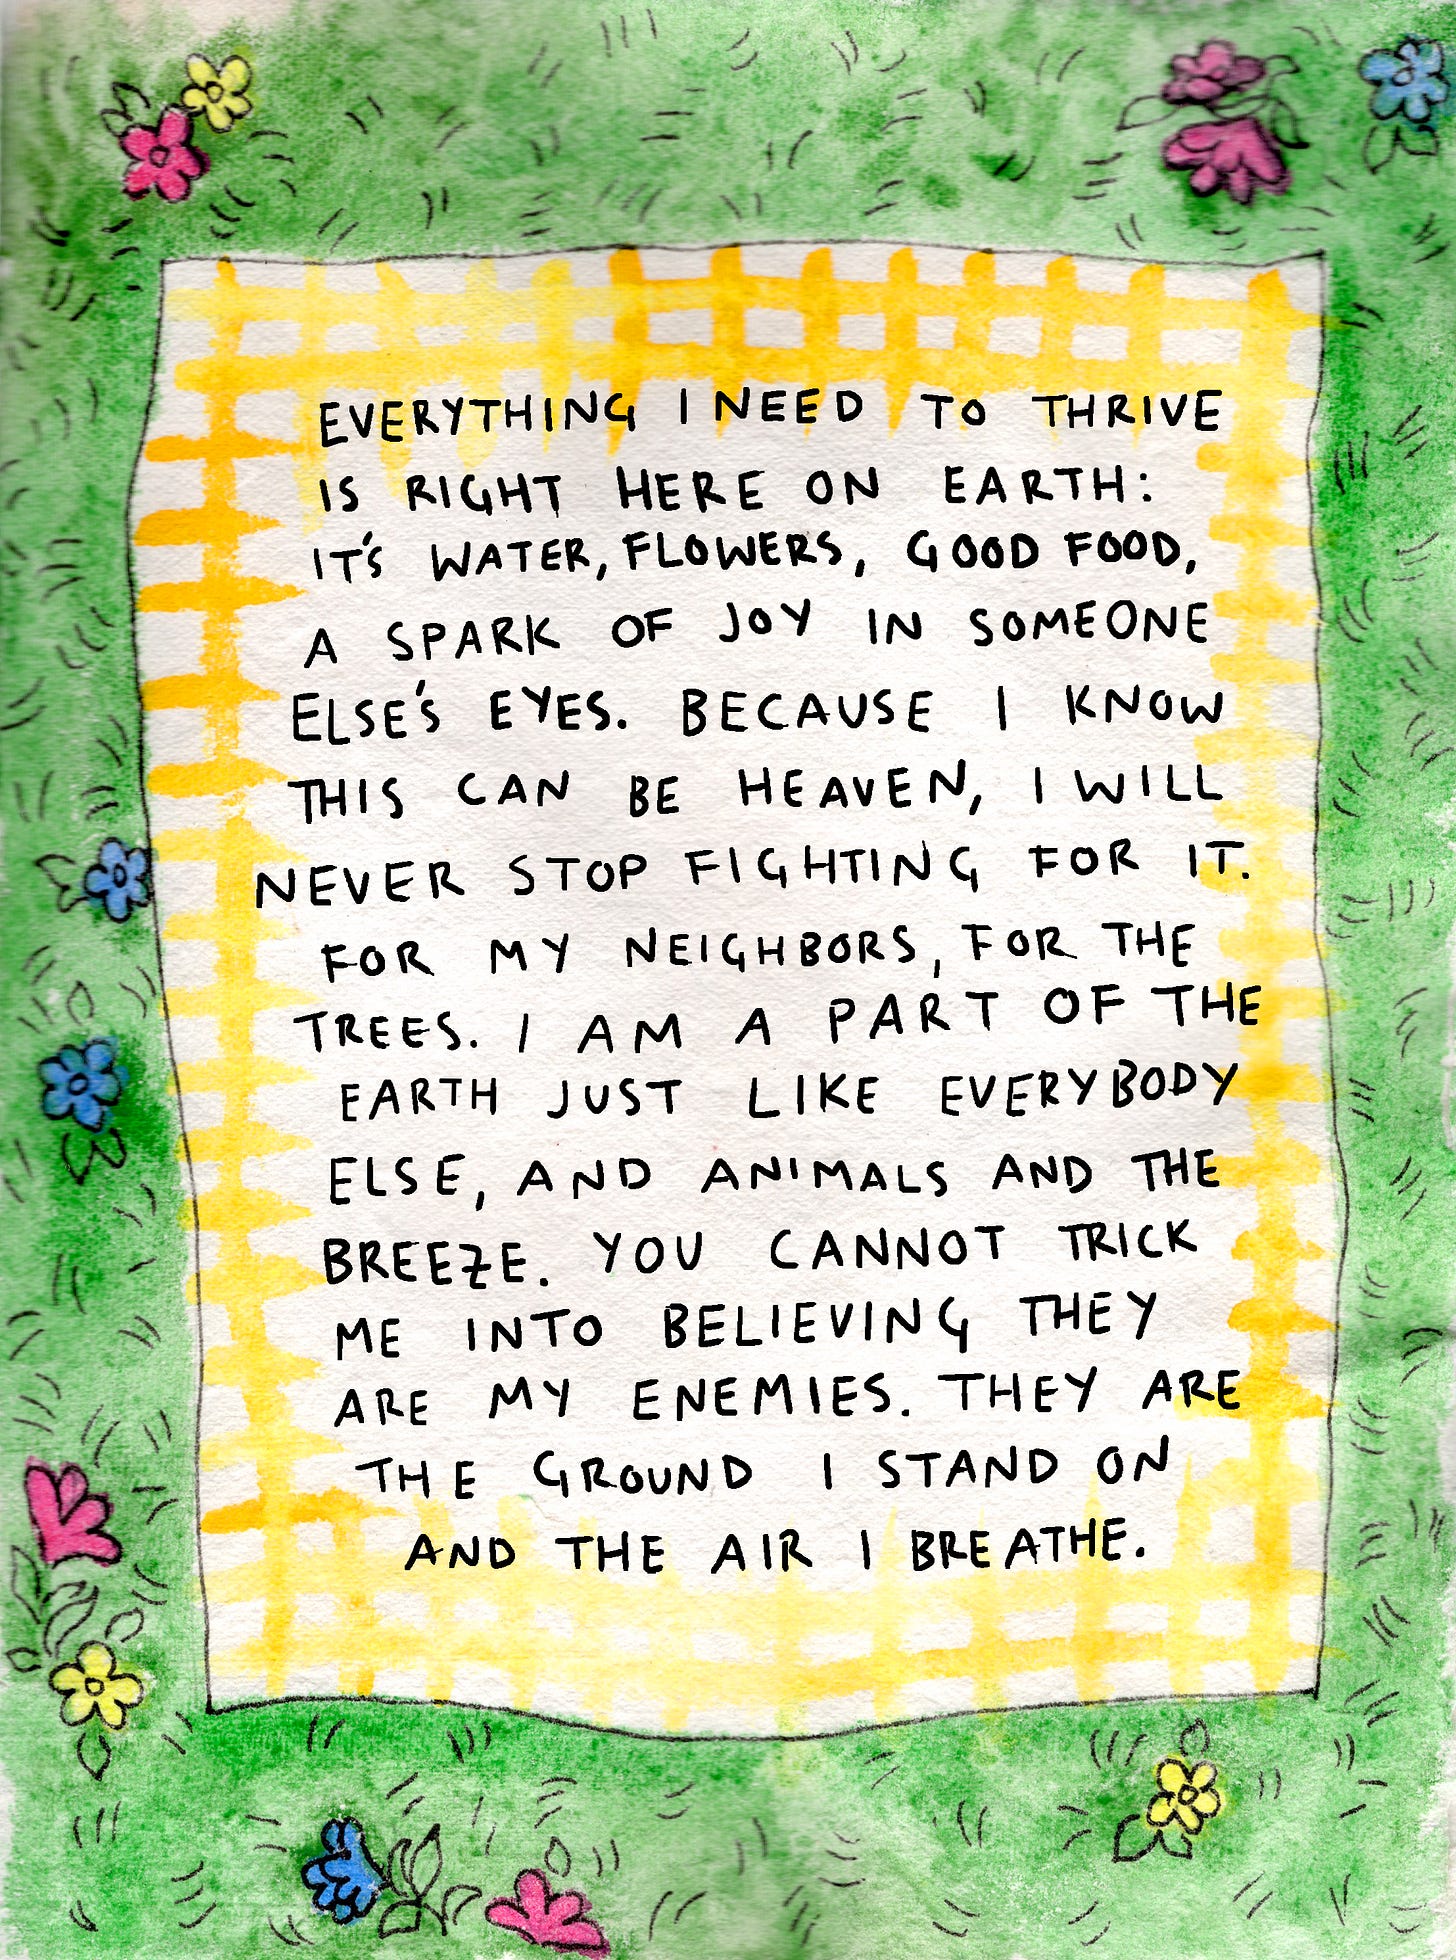 EVERYTHING I NEED TO THRIVE
IS RIGHT HERE ON EARTH:
IT'S WATER, FLOWERS, GOOD FOOD,
A SPARK OF JOY IN SOMEONE
ELSE'S EYES. BECAUSE I KNOW
THIS CAN BE HEAVEN, I WILL
NEVER STOP FIGHTING FOR IT.
FOR MY NEIGHBORS, FOR THE
TREES. I AM A PART OF THE
EARTH JUST LIKE EVERYBODY
ELSE, AND ANIMALS AND THE
BREEZE. YOU CANNOT TRICK
ME INTO BELIEVING THEY
ARE MY ENEMIES. THEY ARE
THE GROUND I STAND ON
AND THE AIR I BREATHE.